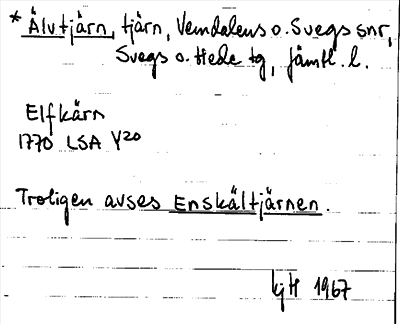 * Älvtjärn, tjärn, Vemdalens o. Svegs snr,
Svegs o. Hede tg, Jämtl. l.
Elfkärn
1770 LSA Y20
Troligen avses Enskältjärnen.
1967